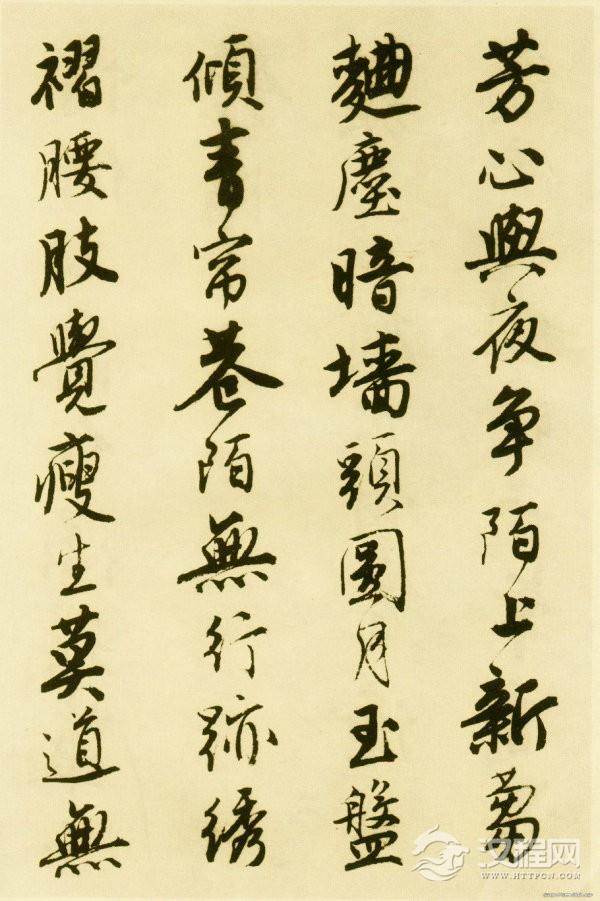 芳心與夜争陌上新
麯塵暗墙頭圓月玉盤
傾青帘巷陌無行跡綉
褶腰肢覺瘦生莫道無
汉程网
WWW.HTTPCN.COM